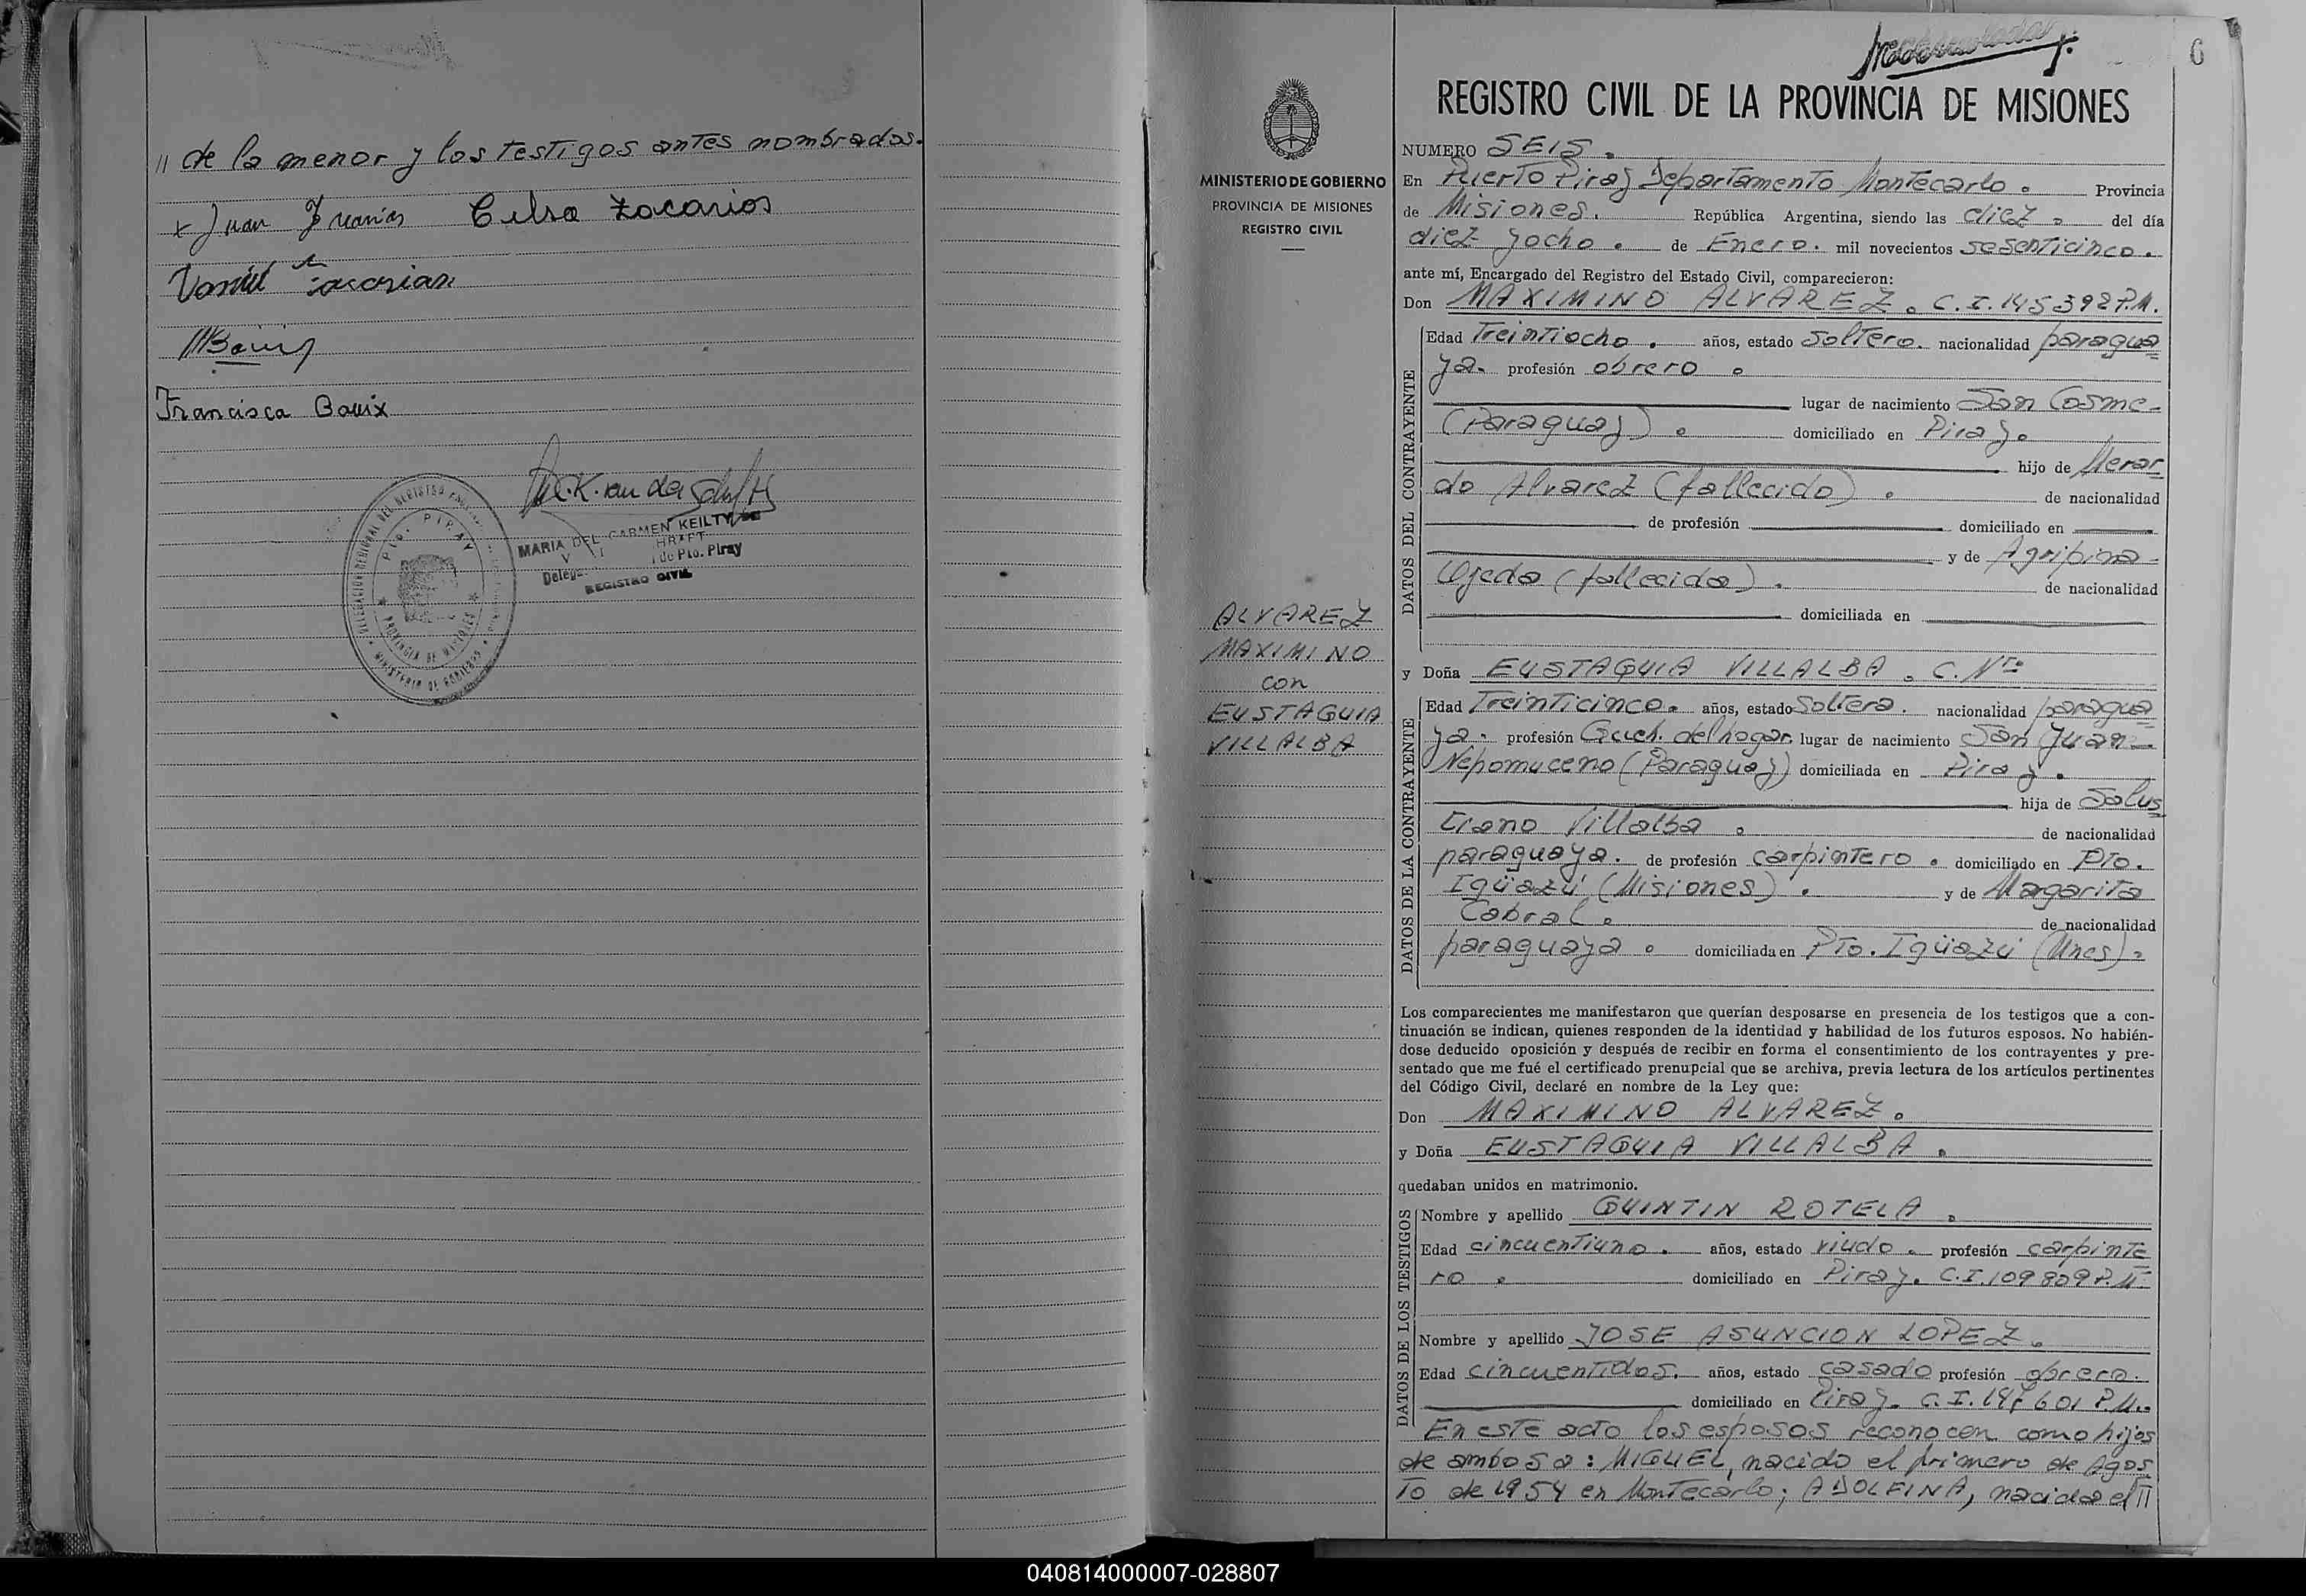 // de la menor y los testigos antes nombrados.
Celsa Zacarias
Francisca Bouix
PROVINCIA DE MISIONES
MINISTERIO DE GOBIERNO
PTO. PIRAY
MARIA DEL CARMEN KEILTY DE
de Pto. Piray
REGISTRO CIVIL
6
REGISTRO CIVIL DE LA PROVINCIA DE MISIONES
MINISTERIO DE GOBIERNO
PROVINCIA DE MISIONES
REGISTRO CIVIL
ALVAREZ
MAXIMINO
con
EUSTAQUIA
VILLALBA
NUMERO SEIS.
En Puerto Piray Departamento Montecarlo. Provincia
de Misiones. República Argentina, siendo las diez. del día
diez yocho. de Enero. mil novecientos sesenticinco.
ante mí, Encargado del Registro del Estado Civil, comparecieron:
Don MAXIMINO ALVAREZ. C.I. 145392 P.M.
DATOS DEL CONTRAYENTE
Edad Treintiocho. años, estado Soltero. nacionalidad paragua
ya. profesión obrero.
lugar de nacimiento San Cosme-
(Paraguay). domiciliado en Piray.
hijo de Merar
do Alvarez (fallecido). de nacionalidad
de profesión domiciliado en
y de Agripina-
Ojeda (fallecida). de nacionalidad
domiciliada en
y Doña EUSTAQUIA VILLALBA. C. Nto
DATOS DE LA CONTRAYENTE
Edad Treinticinco. años, estado Soltera. nacionalidad paragua
ya. profesión Queh. del hogar. lugar de nacimiento San Juan-
Nepomuceno (Paraguay) domiciliada en Piray.
hija de Salus
tiano Villalba. de nacionalidad
paraguaya. de profesión carpintero. domiciliado en Pto.
Igüazú (Misiones). y de Margarita
Cabral. de nacionalidad
paraguaya. domiciliada en Pto. Igüazú (Mnes).
Los comparecientes me manifestaron que querían desposarse en presencia de los testigos que a con-
tinuación se indican, quienes responden de la identidad y habilidad de los futuros esposos. No habién-
dose deducido oposición y después de recibir en forma el consentimiento de los contrayentes y pre-
sentado que me fué el certificado prenupcial que se archiva, previa lectura de los artículos pertinentes
del Código Civil, declaré en nombre de la Ley que:
Don MAXIMINO ALVAREZ.
y Doña EUSTAQUIA VILLALBA.
quedaban unidos en matrimonio.
DATOS DE LOS TESTIGOS
Nombre y apellido QUINTIN ROTELA.
Edad cincuentiuno. años, estado viudo. profesión carpinte
ro. domiciliado en Piray. C.I. 109809 P.M.
Nombre y apellido JOSE ASUNCION LOPEZ.
Edad cincuentidos. años, estado casado profesión obrero.
domiciliado en Piray. C.I. P.M.
En este acto los esposos reconocen como hijos
de ambos a: MIGUEL, nacido el primero de Agos
to de 1954 en Montecarlo; ADOLFINA, nacida el //
040814000007-028807